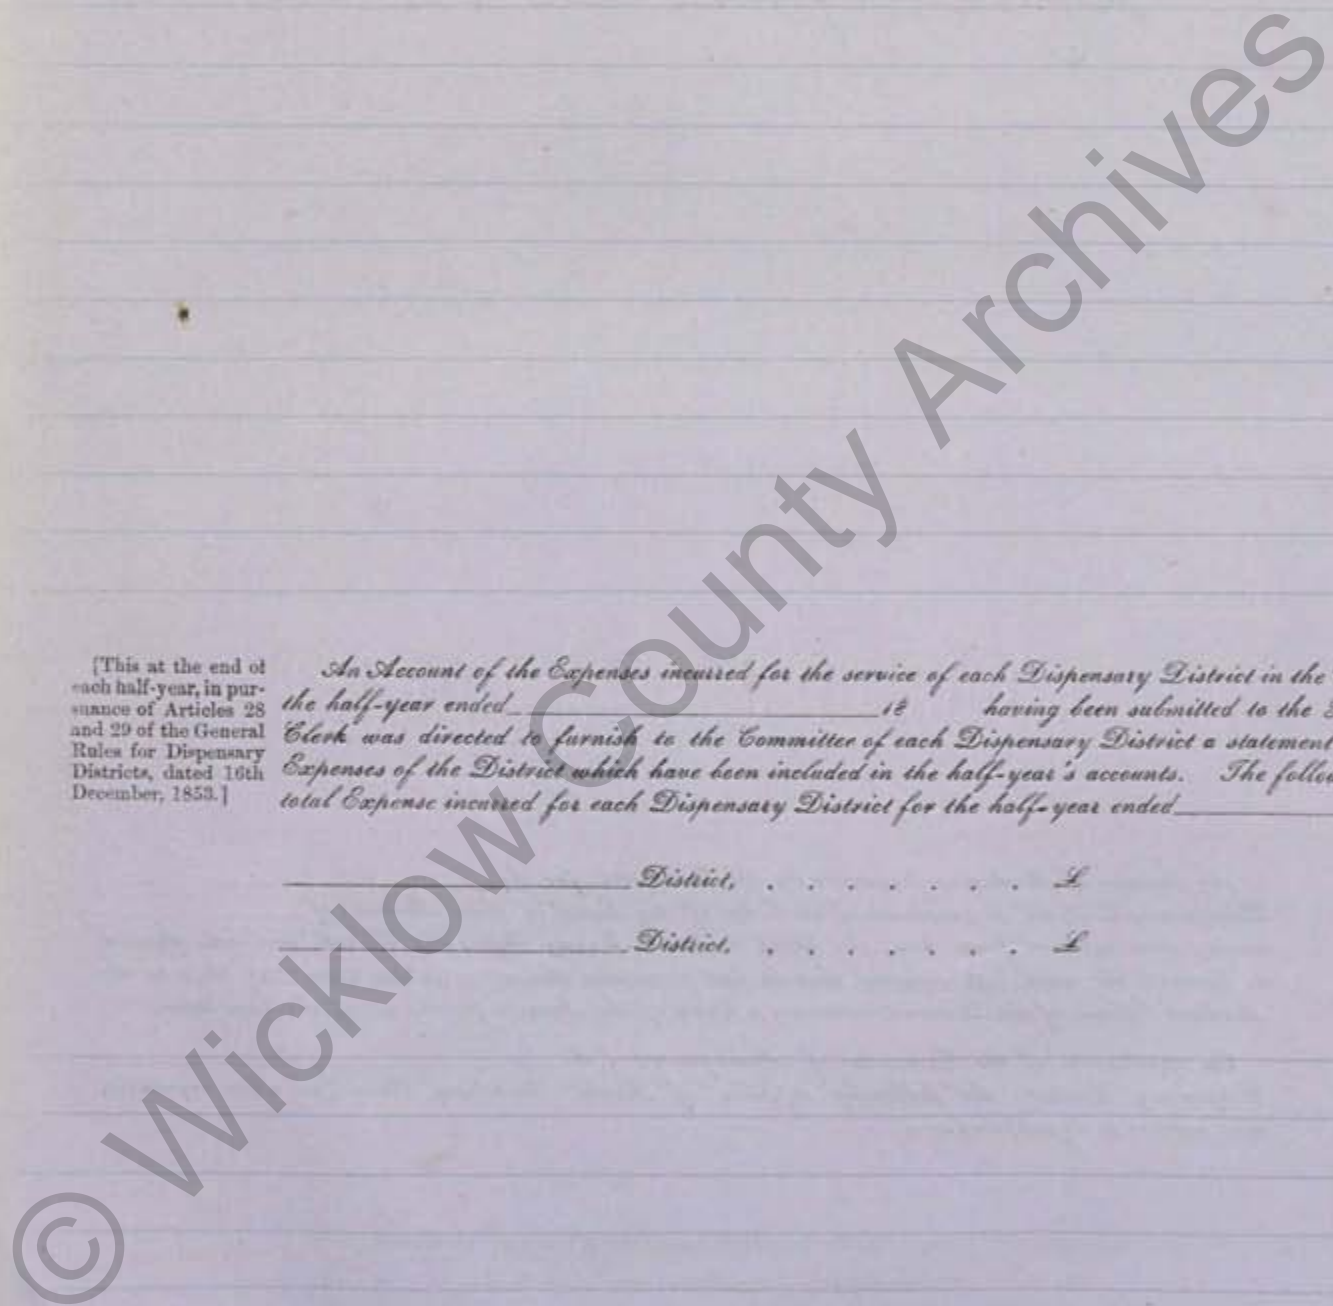 [This at the end of
each half-year, in pur-
suance of Articles 28
and 29 of the General
Rules for Dispensary
Districts, dated 16th
December, 1853.]
An Account of the Expenses incurred for the service of each Dispensary District in the
the half-year ended____________________18 having been submitted to the
Clerk was directed to furnish to the Committee of each Dispensary District a statement
Expenses of the District which have been included in the half-year's accounts. The follow
total Expense incurred for each Dispensary District for the half-year ended____________
____________________District, . . . . . . . £
____________________District, . . . . . . . £
© Wicklow County Archives